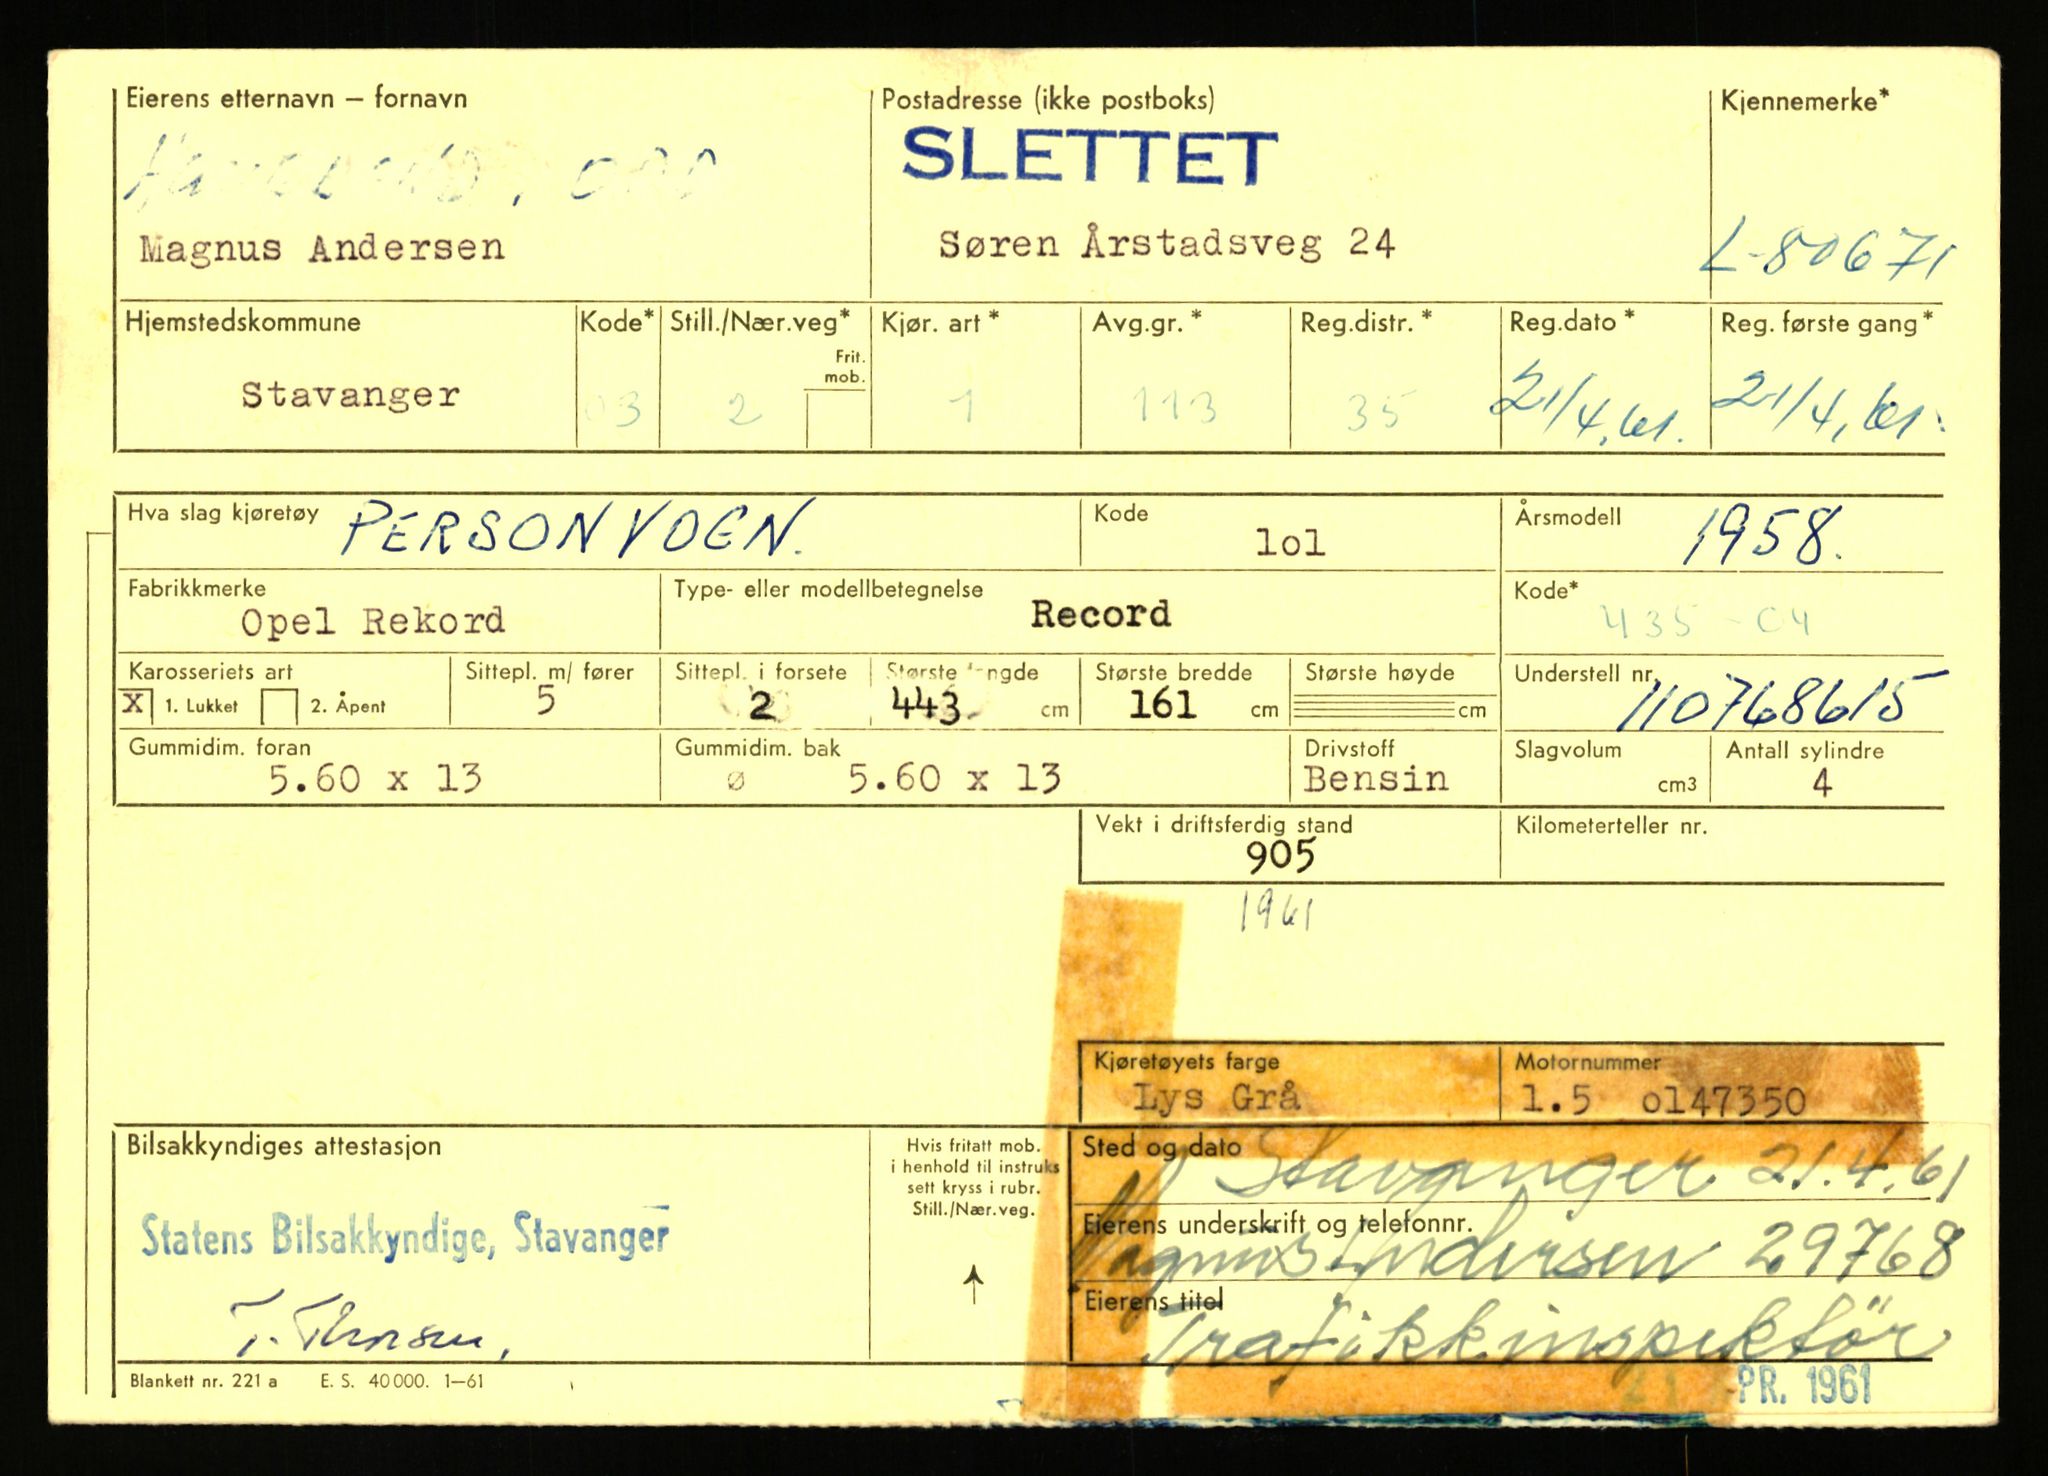 Eierens etternavn – fornavn Postadresse (ikke postboks) Kjennemerke*
SLETTET
Magnus Andersen Søren Årstadsveg 24 L-80671
Hjemstedskommune Kode* Still./Nær.veg* Kjør. art* Avg.gr.* Reg.distr.* Reg.dato* Reg. første gang*
Frit. mob.
Stavanger 03 2 1 113 35 21/4.61. 21/4, 61.
Hva slag kjøretøy PERSONVOGN. Kode lol Årsmodell 1958.
Fabrikkmerke Type- eller modellbetegnelse Kode*
Opel Rekord Record 435-04
Karosseriets art Sittepl. m/ fører Sittepl. i forsete Største lengde Største bredde Største høyde Understell nr.
X 1. Lukket 2. Åpent 5 2 443 cm 161 cm cm 110768615
Gummidim. foran Gummidim. bak Drivstoff Slagvolum Antall sylindre
5.60 x 13 ø 5.60 x 13 Bensin cm3 4
Vekt i driftsferdig stand Kilometerteller nr.
905
1961
Kjøretøyets farge Motornummer
Lys Grå 1.5 ol47350
Bilsakkyndiges attestasjon
Hvis fritatt mob.
i henhold til instruks
sett kryss i rubr.
Still./Nær.veg.
Sted og dato
Stavanger 21.4.61
Statens Bilsakkyndige, Stavanger
Eierens underskrift og telefonnr.
Magnus Andersen 29768
Eierens titel
T. Thorsen,
Trafikkinspektör
Blankett nr. 221 a E. S. 40 000. 1–61
21 PR. 1961